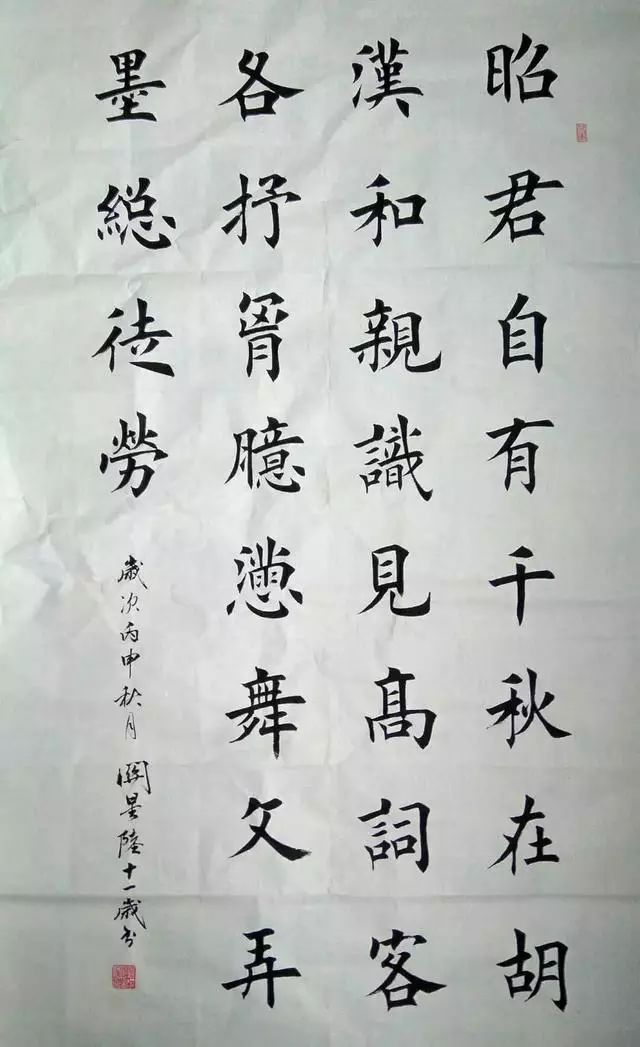 昭君自有千秋在胡
漢和親識見髙詞客
各抒胷臆懣舞文弄
墨緫徒勞
歲次丙申秋月 關星陸十一歲書